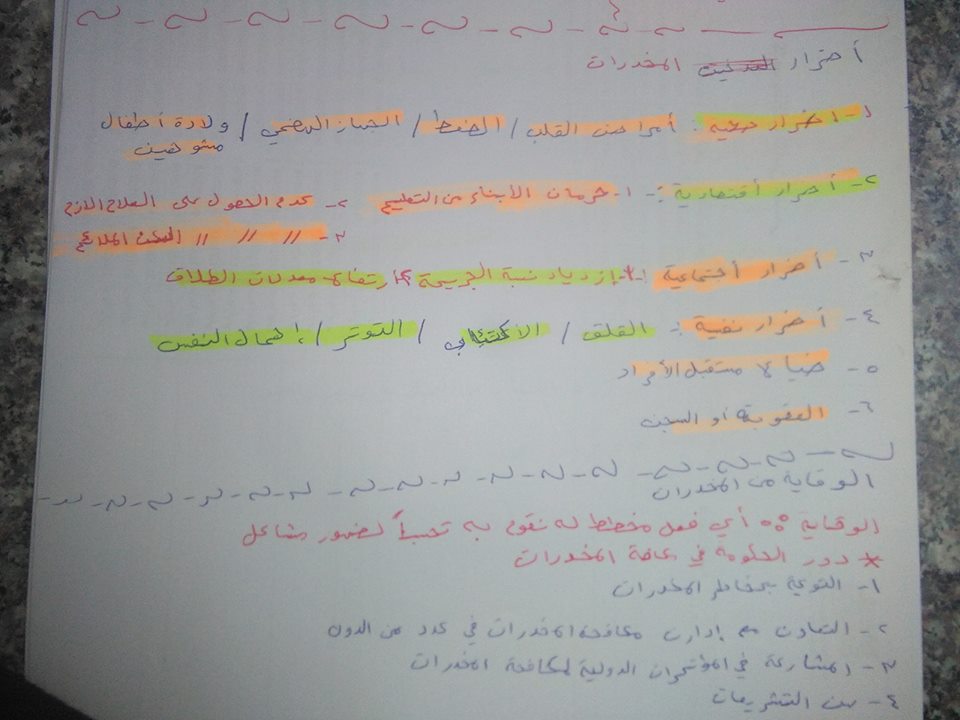 أضرار المخدرات
١- أضرار صحية : أمراض القلب / الضغط / الجهاز الهضمي / ولادة أطفال
مشوهين
٢- أضرار أقتصادية :- ١- حرمان الأبناء من التعليم ٢- عدم الحصول على العلاج الازم
٣- // // // السكن الملائم
٣- أضرار أجتماعية ١- إزدياد نسبة الجريمة ٢- أرتفاع معدلات الطلاق
٤- أضرار نفسية :- القلق / الاكتئاب / التوتر / إهمال النفس
٥- ضياع مستقبل الأفراد
٦- العقوبة أو السجن
الوقاية من المخدرات
الوقاية :: أي فعل مخطط له نقوم به تحسباً لظهور مشاكل
* دور الحكومة في المخدرات
١- التوعية بمخاطر المخدرات
٢- التعاون مع إدارات مكافحة المخدرات في عدد من الدول
٣- المشاركة في المؤتمرات الدولية لمكافحة المخدرات
٤- سن التشريعات